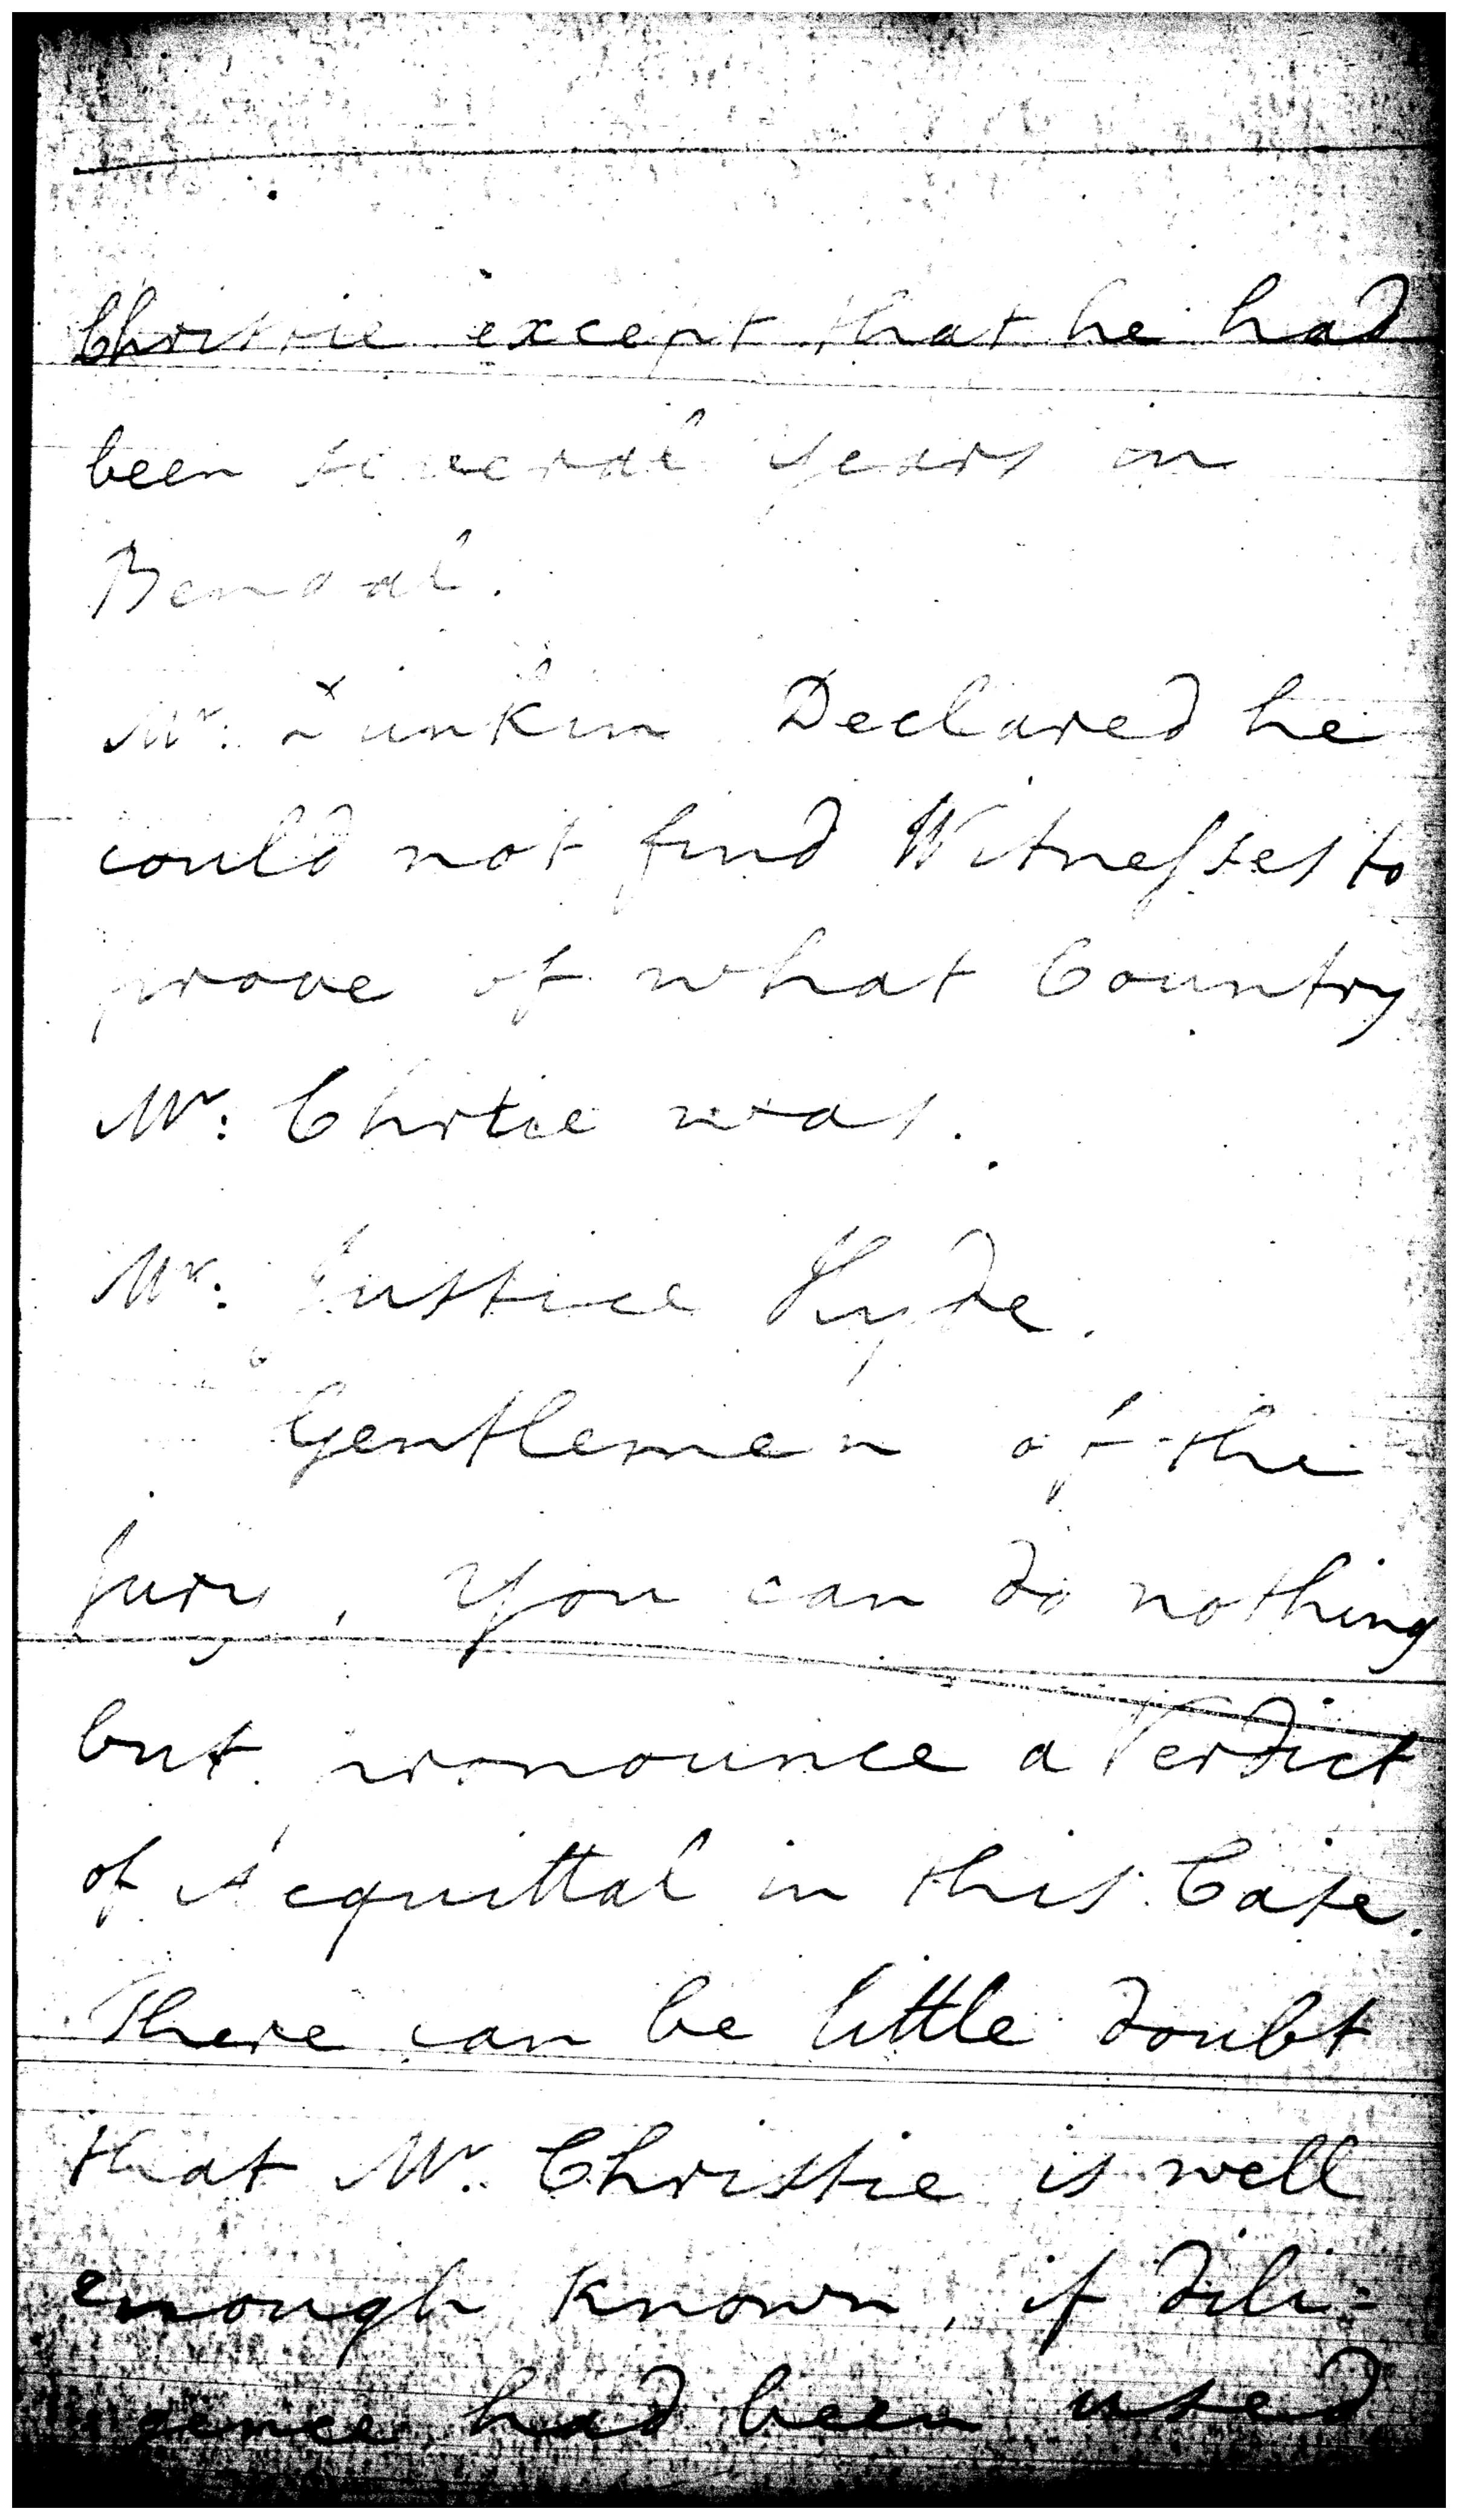 Christie except that he had
been several years in
Bengal.
Mr: Dunkin Declared he
could not find Witnesses to
prove of what Country
Mr: Chrtie was.
Mr: Justice Hyde.
Gentlemen of the
Jury, You can do nothing
but pronounce a Verdict
of Acquittal in this Case.
There can be little doubt
that Mr. Christie is well
enough known, if dili=
gence had been used